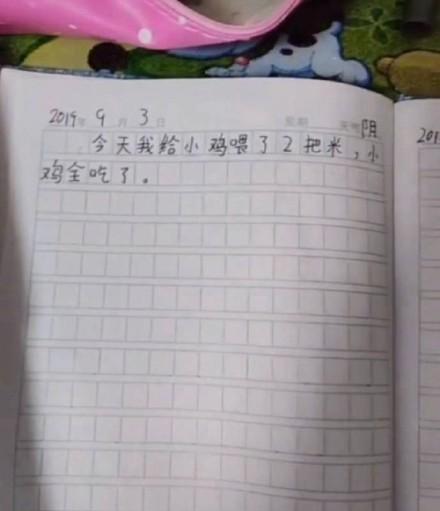 2019年 9月 3日 星期 天气 阴
今天我给小鸡喂了2把米，小
鸡全吃了。
201